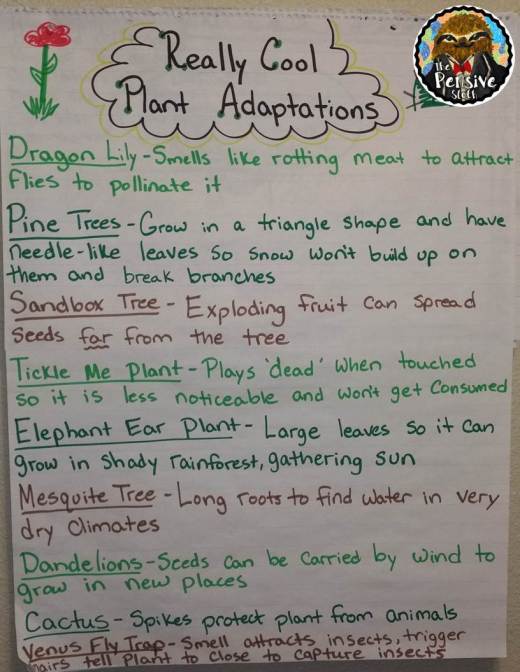 Really Cool
Plant Adaptations
The
Pensive
Sloth
Dragon Lily - Smells like rotting meat to attract
flies to pollinate it
Pine Trees - Grow in a triangle shape and have
needle-like leaves so snow won't build up on
them and break branches
Sandbox Tree - Exploding fruit can spread
seeds far from the tree
Tickle Me Plant - Plays 'dead' when touched
so it is less noticeable and won't get consumed
Elephant Ear Plant - Large leaves so it can
grow in shady rainforest, gathering sun
Mesquite Tree - Long roots to find water in very
dry climates
Dandelions - Seeds can be carried by wind to
grow in new places
Cactus - Spikes protect plant from animals
Venus Fly Trap - Smell attracts insects, trigger
hairs tell plant to close to capture insects